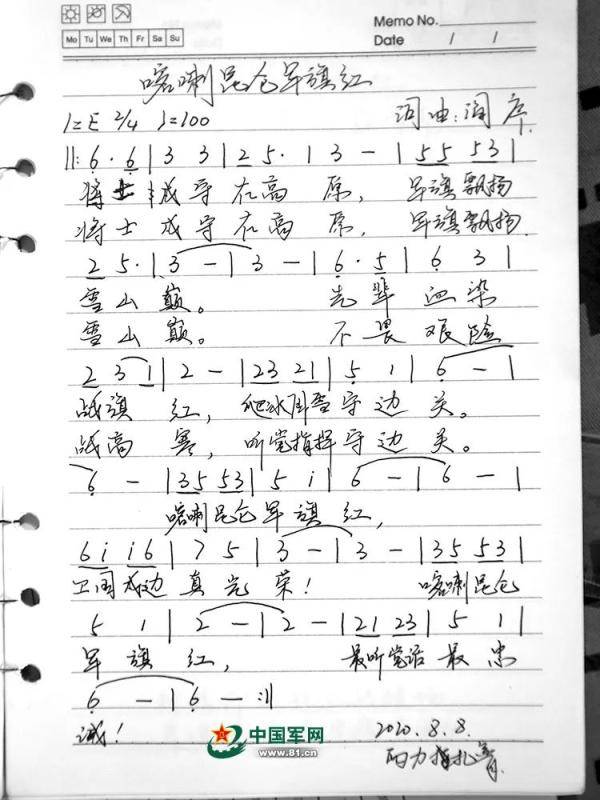 Memo No.
Mo Tu We Th Fr Sa Su
Date / /
喀喇昆仑军旗红
1=E 2/4 ♩=100 词曲:闻序
‖: 6 · 6 | 3 3 | 2 5 · | 3 - | 55 53 |
将士戍守在高原, 军旗飘扬
将士戍守在高原, 军旗飘扬
2 5 · | 3 - | 3 - | 6 · 5 | 6 3 |
雪山巅。 先辈血染
雪山巅。 不畏艰险
2 3 1 | 2 - | 23 21 | 5 1 | 6 - |
战旗红, 爬冰卧雪守边关。
战高寒, 听党指挥守边关。
6 - | 35 53 | 5 i | 6 - | 6 - |
喀喇昆仑军旗红,
6 i i 6 | 7 5 | 3 - | 3 - | 35 53 |
卫国戍边真光荣! 喀喇昆仑
5 1 | 2 - | 2 - | 21 23 | 5 1 |
军旗红, 最听党话最忠
6 - | 6 - :‖
诚!
中国军网
www.81.cn
2020.8.8.